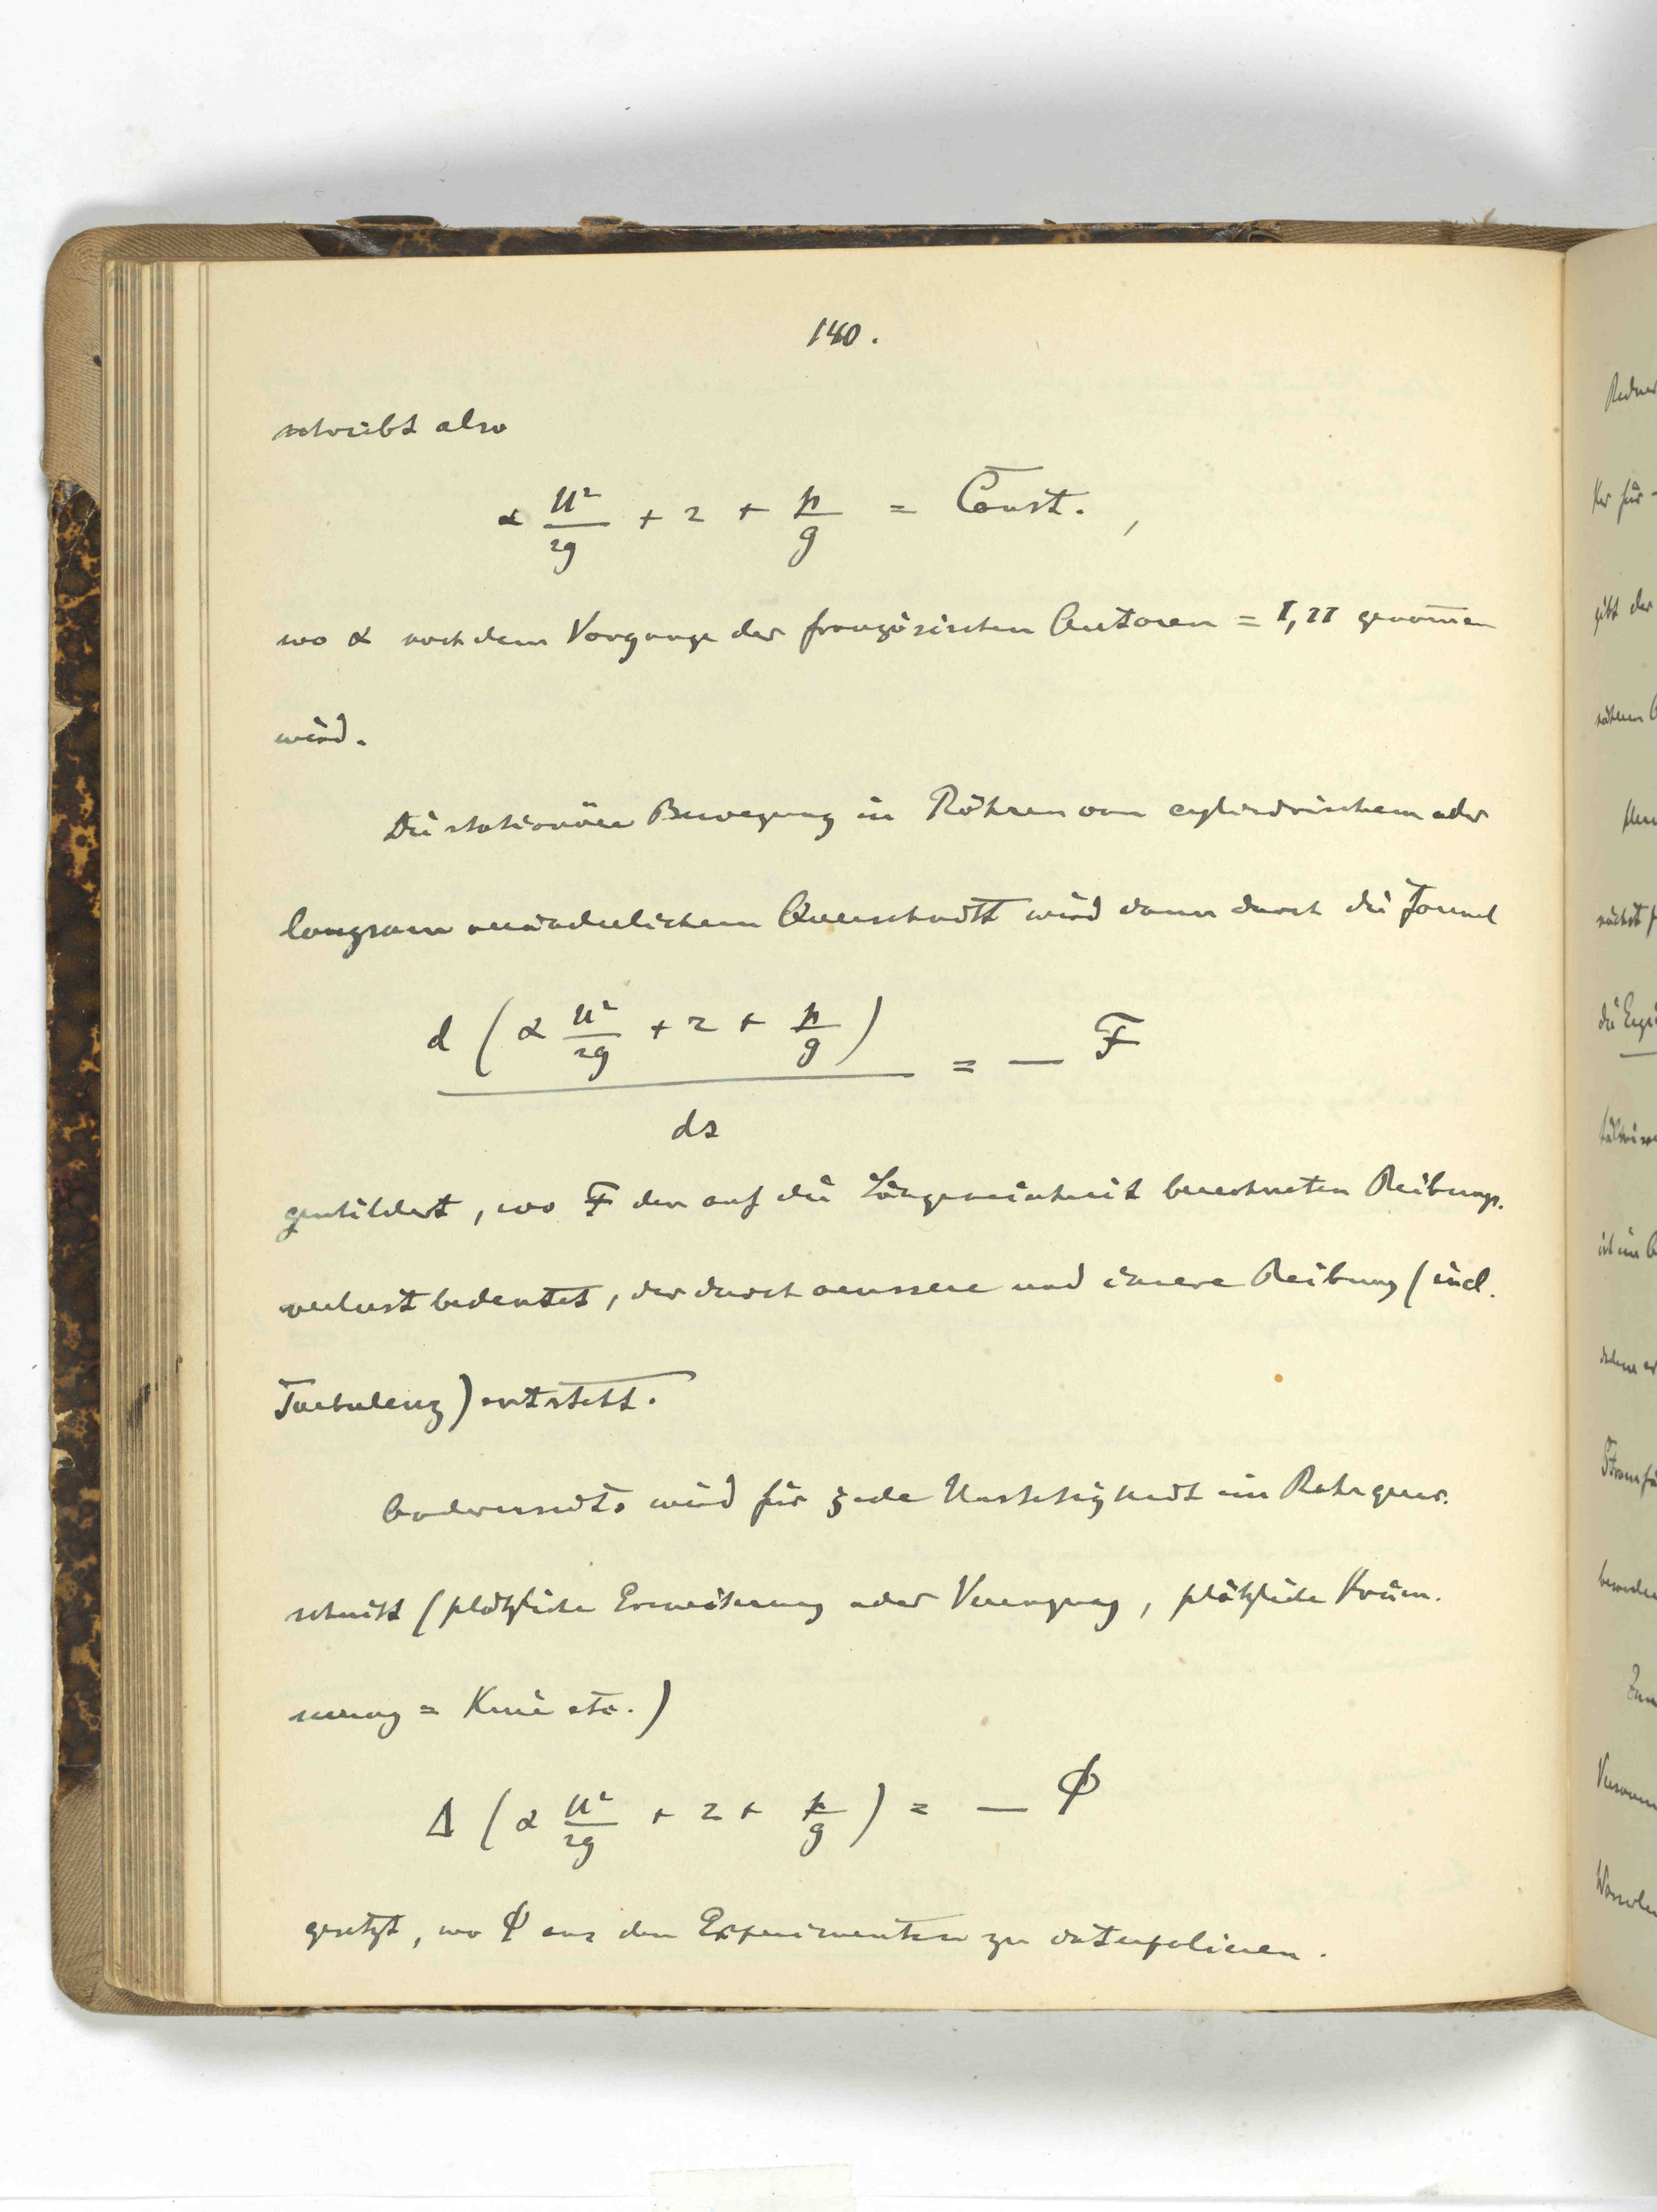 140.
schreibt also
α U²/2g + z + p/g = Const. ,
wo α nach dem Vorgange der französischen Autoren = 1,11 genom̄en
wird.
Die stationäre Bewegung in Röhren von cylindrischem oder
langsam veränderlichem Querschnitt wird dann durch die Formel
d (α U²/2g + z + p/g) / ds = — F
geschildert, wo F den auf die Längeneinheit berechneten Reibungs-
verlust bedeutet, der durch aeussere und innere Reibung (incl.
Turbulenz) entsteht.
Anderseits wird für jede Unstetigkeit im Rohrquer-
schnitt (plötzliche Erweiterung oder Verengung, plötzliche Krüm-
mung = Knie etc.)
Δ (α U²/2g + z + p/g) = — Φ
gesetzt, wo Φ aus den Experimenten zu interpoliren.